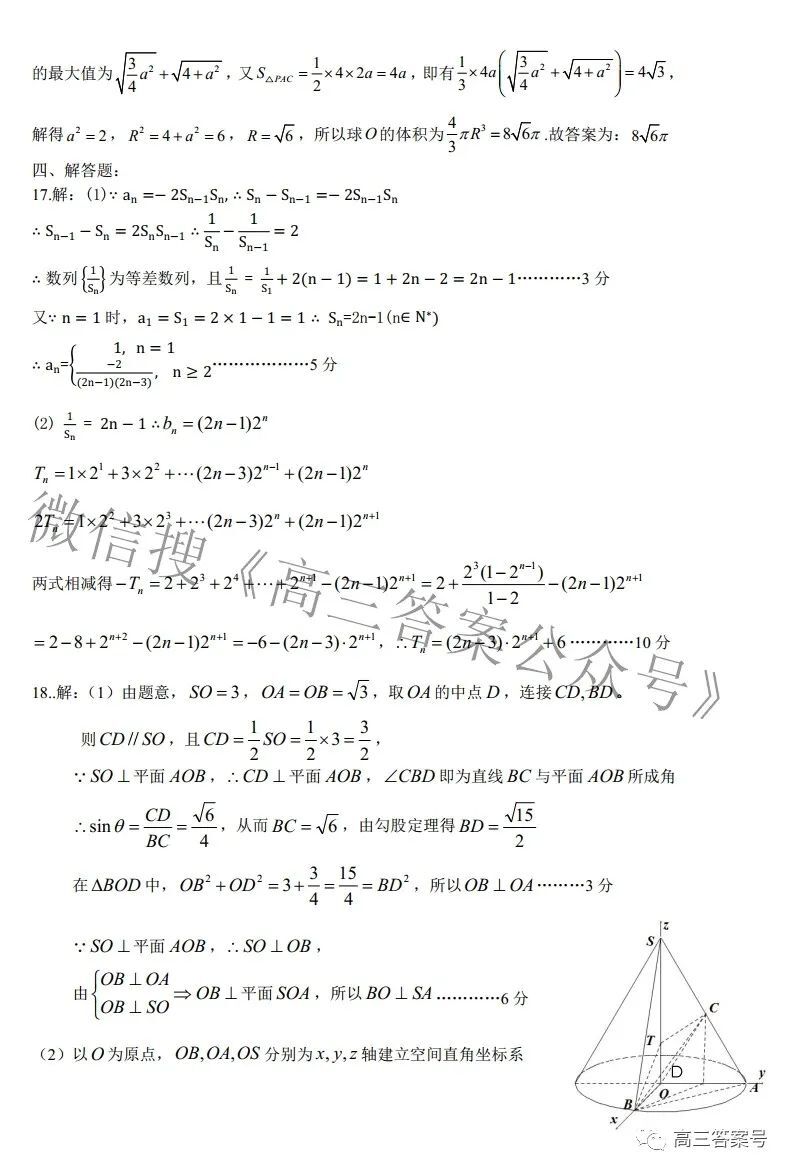 的最大值为√(3/4 a²)+√(4+a²)，又S△PAC=1/2×4×2a=4a，即有1/3×4a(√(3/4 a²)+√(4+a²))=4√3，
解得a²=2，R²=4+a²=6，R=√6，所以球O的体积为4/3πR³=8√6π.故答案为：8√6π
四、解答题：
17.解：(1)∵aₙ=−2Sₙ₋₁Sₙ,∴Sₙ−Sₙ₋₁=−2Sₙ₋₁Sₙ
∴Sₙ₋₁−Sₙ=2SₙSₙ₋₁∴1/Sₙ−1/Sₙ₋₁=2
∴数列{1/Sₙ}为等差数列，且1/Sₙ=1/S₁+2(n−1)=1+2n−2=2n−1…………3分
又∵n=1时，a₁=S₁=2×1−1=1∴ Sₙ=2n−1(n∈N*)
∴aₙ={1, n=1; −2/((2n−1)(2n−3)), n≥2………………5分
(2) 1/Sₙ = 2n−1∴bₙ=(2n−1)2ⁿ
Tₙ=1×2¹+3×2²+⋯(2n−3)2ⁿ⁻¹+(2n−1)2ⁿ
2Tₙ=1×2²+3×2³+⋯(2n−3)2ⁿ+(2n−1)2ⁿ⁺¹
两式相减得−Tₙ=2+2³+2⁴+⋯+2ⁿ⁺¹−(2n−1)2ⁿ⁺¹=2+2³(1−2ⁿ⁻¹)/(1−2)−(2n−1)2ⁿ⁺¹
=2−8+2ⁿ⁺²−(2n−1)2ⁿ⁺¹=−6−(2n−3)·2ⁿ⁺¹，∴Tₙ=(2n−3)·2ⁿ⁺¹+6…………10分
18..解：（1）由题意，SO=3，OA=OB=√3，取OA的中点D，连接CD,BD。
则CD//SO，且CD=1/2SO=1/2×3=3/2，
∵SO⊥平面AOB，∴CD⊥平面AOB，∠CBD即为直线BC与平面AOB所成角
∴sinθ=CD/BC=√6/4，从而BC=√6，由勾股定理得BD=√15/2
在ΔBOD中，OB²+OD²=3+3/4=15/4=BD²，所以OB⊥OA………3分
∵SO⊥平面AOB，∴SO⊥OB，
由{OB⊥OA; OB⊥SO⇒OB⊥平面SOA，所以BO⊥SA…………6分
（2）以O为原点，OB,OA,OS分别为x,y,z轴建立空间直角坐标系
z
S
C
T
D
y
O
A
B
x
微信搜《高三答案公众号》
高三答案号